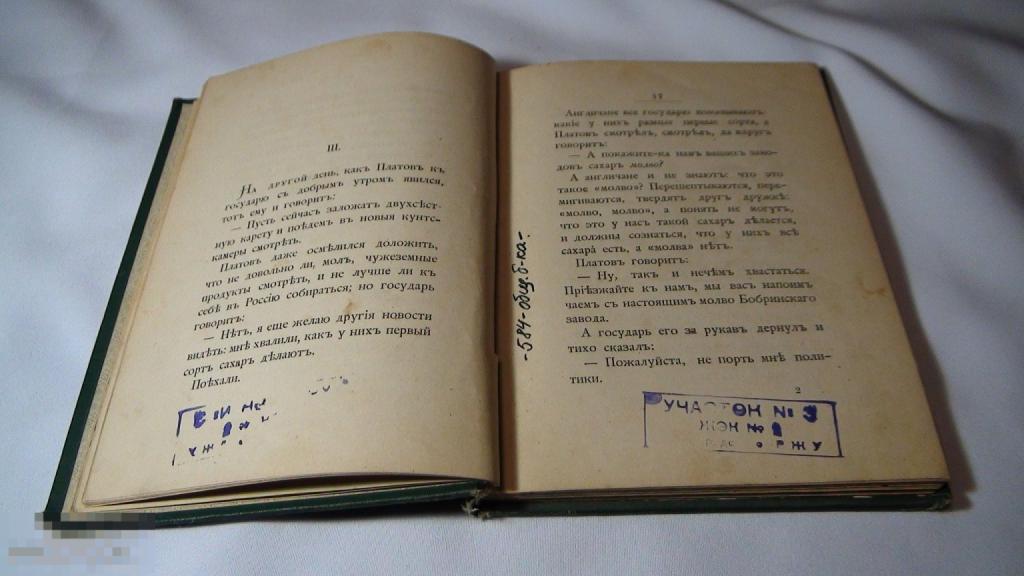 III.
На другой день, какъ Платовъ къ
государю съ добрымъ утромъ явился,
тотъ ему и говоритъ:
— Пусть сейчасъ заложатъ двухсѣст-
ную карету и поѣдемъ въ новыя кунст-
камеры смотрѣть.
Платовъ даже осмѣлился доложить,
что не довольно ли, молъ, чужеземные
продукты смотрѣть, и не лучше ли къ
себѣ въ Россію собираться; но государь
говоритъ:
— Нѣтъ, я еще желаю другія новости
видѣть: мнѣ хвалили, какъ у нихъ первый
сортъ сахаръ дѣлаютъ.
Поѣхали.
17
Англичане все государю показываютъ
какіе у нихъ разные первые сорта, а
Платовъ смотрѣлъ, смотрѣлъ, да вдругъ
говоритъ:
— А покажите-ка намъ вашихъ заво-
довъ сахаръ молво?
А англичане и не знаютъ: что это
такое «молво»? Перешептываются, пере-
мигиваются, твердятъ другъ дружкѣ:
«молво, молво», а понять не могутъ,
что это у насъ такой сахаръ дѣлается,
и должны сознаться, что у нихъ всѣ
сахара есть, а «молва» нѣтъ.
Платовъ говоритъ:
— Ну, такъ и нечѣмъ хвастаться.
Пріезжайте къ намъ, мы васъ напоим
чаемъ съ настоящимъ молво Бобринскаго
завода.
А государь его за рукавъ дернулъ и
тихо сказалъ:
— Пожалуйста, не порть мнѣ поли-
тики.
2
-584-общ.б-ка-
УЧАСТОК № 3
ЖЭК №